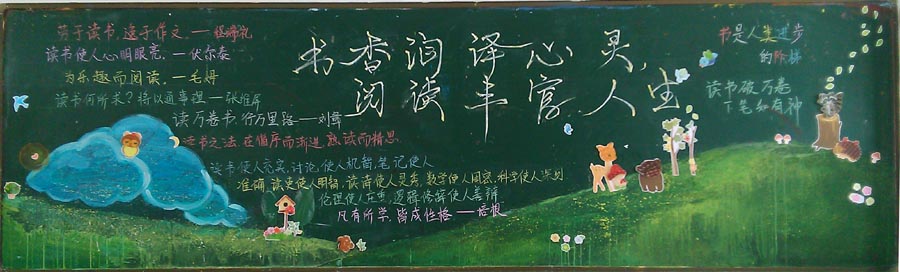 书香润泽心灵,
阅读丰富人生
劳于读书,逸于作文。—程端礼
读书使人心明眼亮。—伏尔泰
为乐趣而阅读。—毛姆
读书何所求?将以通事理—张维屏
读万卷书,行万里路——刘彝
读书之法,在循序而渐进,熟读而精思
读书使人充实,讨论使人机智,笔记使人
准确,读史使人明智,读诗使人灵秀,数学使人周密,科学使人深刻
伦理使人庄重,逻辑修辞使人善辩
凡有所学,皆成性格——培根
书是人类进步
的阶梯
读书破万卷
下笔如有神